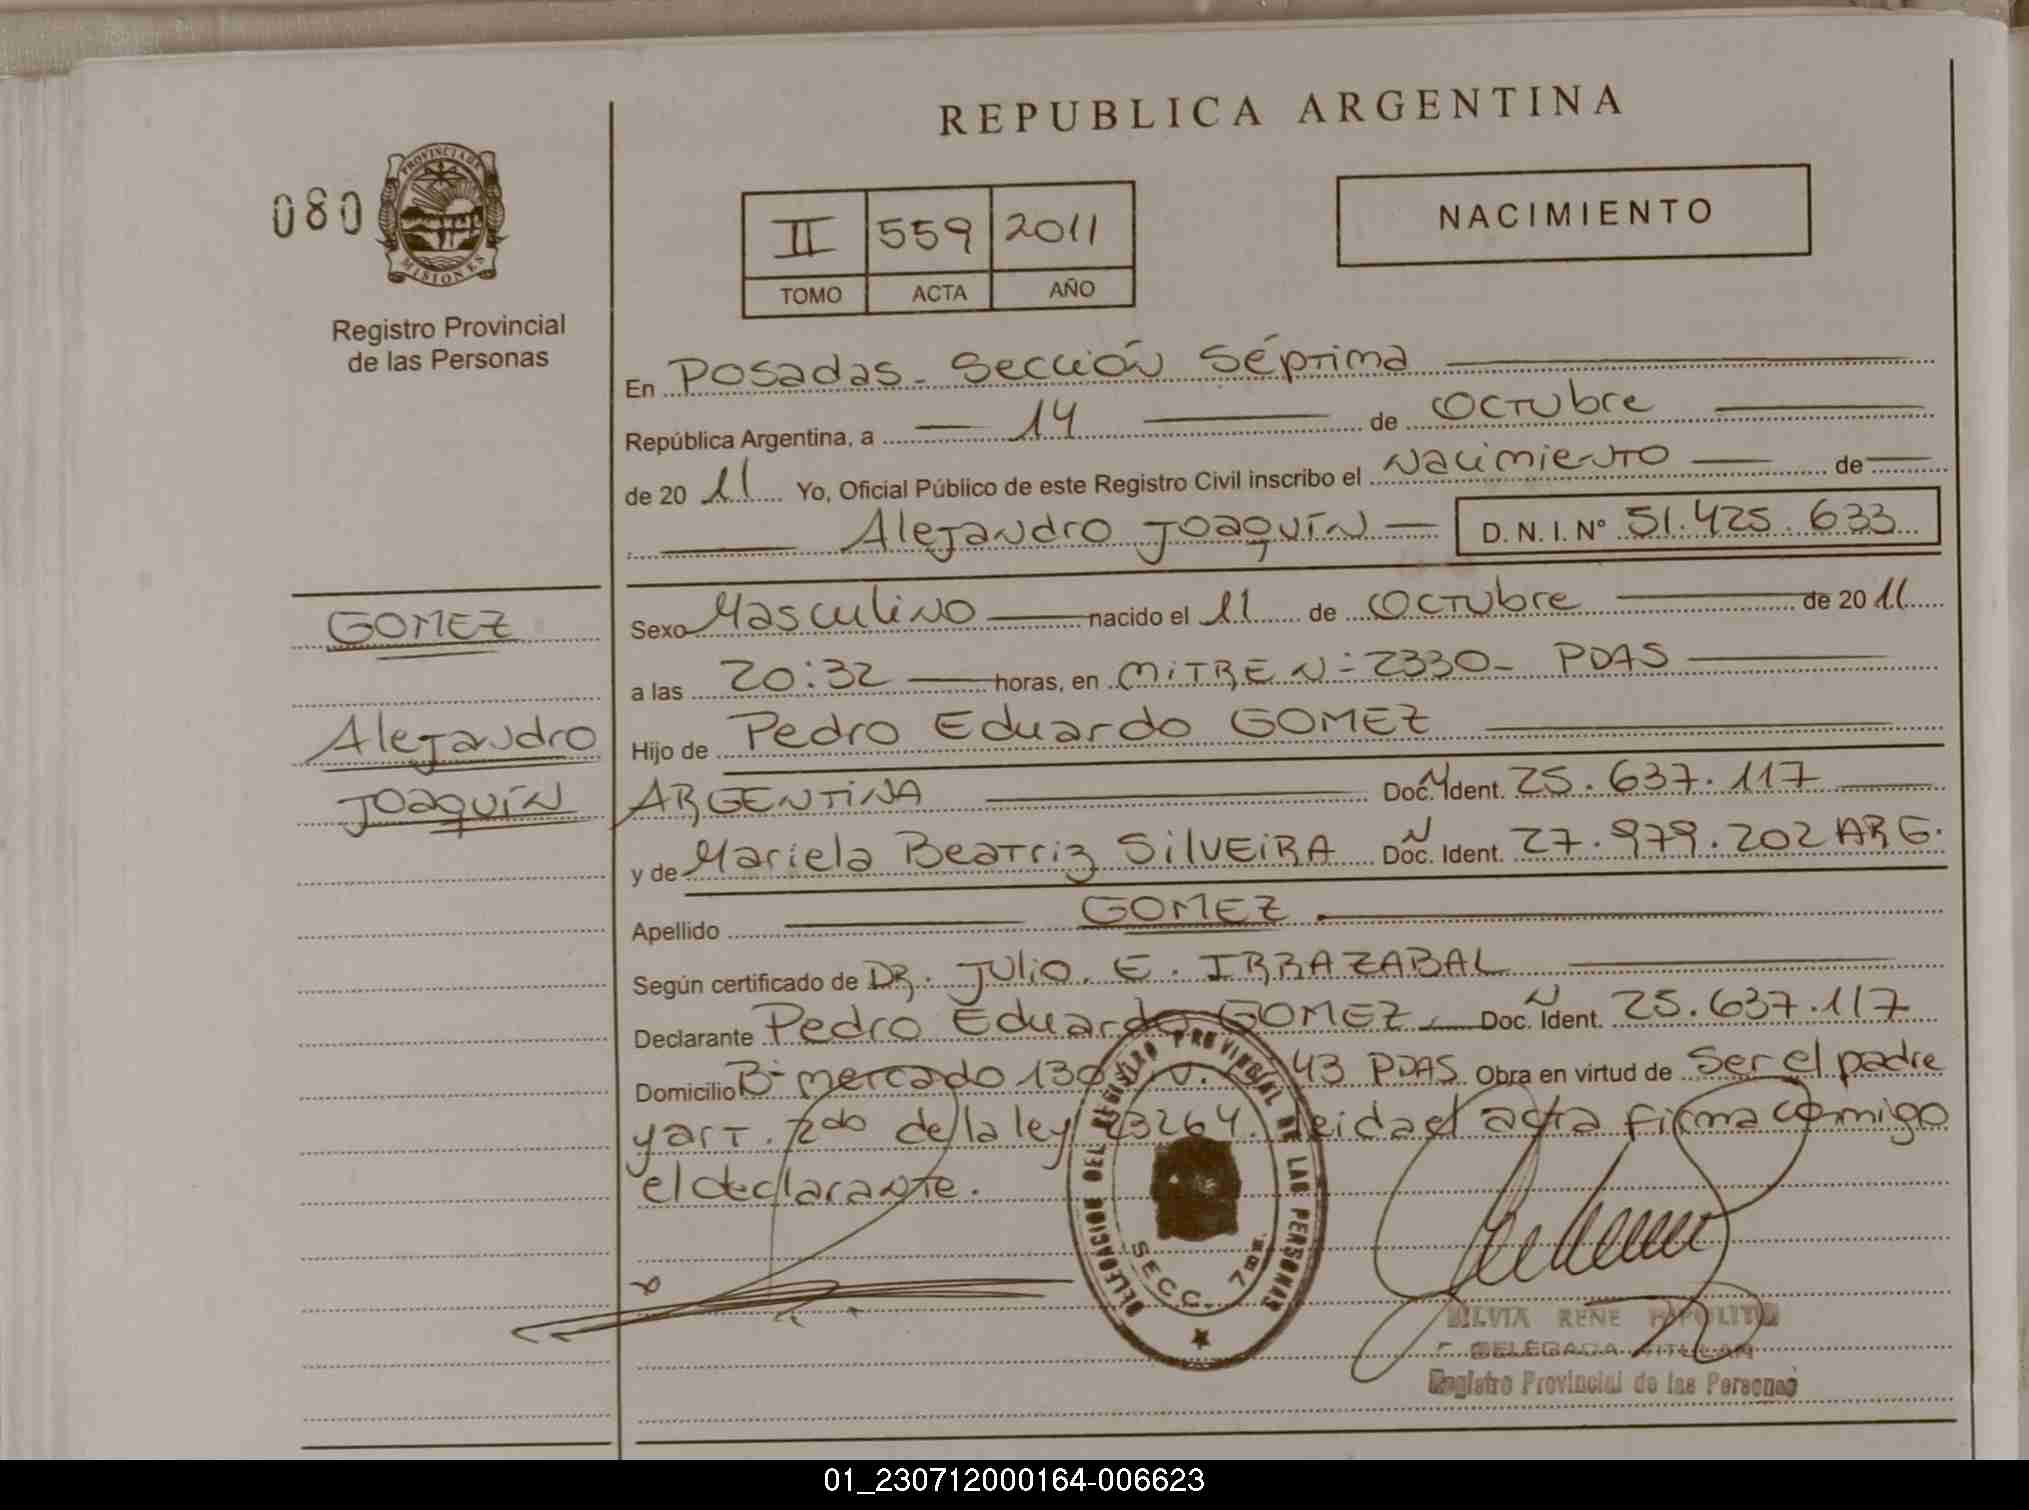 REPUBLICA ARGENTINA
080
PROVINCIA DE
MISIONES
Registro Provincial
de las Personas
II 559 2011
TOMO ACTA AÑO
NACIMIENTO
En Posadas - Sección Séptima
República Argentina, a 14 de Octubre
de 2011 Yo, Oficial Público de este Registro Civil inscribo el Nacimiento de
Alejandro Joaquín D.N.I.Nº 51.425.633
GOMEZ
Alejandro
Joaquín
Sexo Masculino nacido el 11 de Octubre de 2011
a las 20:32 horas, en MiTRE Nº 2330 - PDAS
Hijo de Pedro Eduardo GOMEZ
ARGENTINA Doc. Ident. 25.637.117
y de Mariela Beatriz SilVEiRA Doc. Ident. 27.979.202 ARG.
Apellido GOMEZ
Según certificado de DR. Julio. E. IRRAZABAL
Declarante Pedro Eduardo GOMEZ Doc. Ident. 25.637.117
Domicilio Bº mercado 130 V. 43 PDAS Obra en virtud de Ser el padre
y art. 2do de la ley 23264. Leida el acta firma conmigo
el declarante.
DELEGACION DEL REGISTRO PROVINCIAL DE LAS PERSONAS
SECC. 7
SILVIA RENE HIPOLITO
DELEGADA TITULAR
Registro Provincial de las Personas
01_230712000164-006623